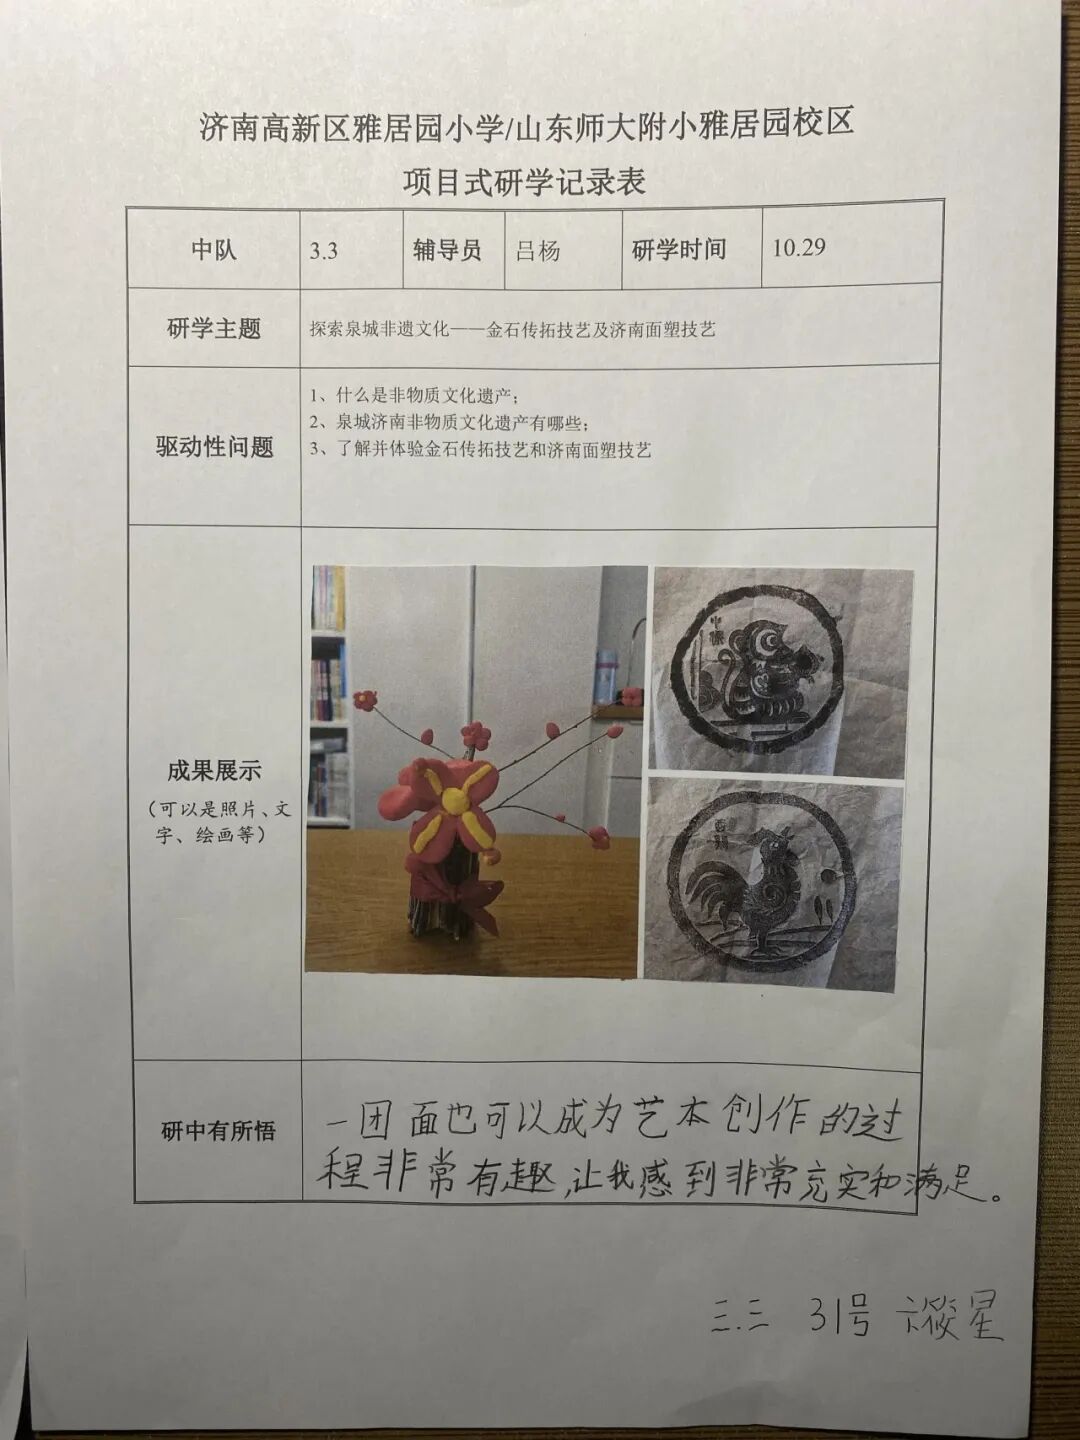 济南高新区雅居园小学/山东师大附小雅居园校区
项目式研学记录表
中队 3.3 辅导员 吕杨 研学时间 10.29
研学主题 探索泉城非遗文化——金石传拓技艺及济南面塑技艺
驱动性问题
1、什么是非物质文化遗产；
2、泉城济南非物质文化遗产有哪些；
3、了解并体验金石传拓技艺和济南面塑技艺
成果展示
（可以是照片、文
字、绘画等）
申猴
酉鸡
研中有所悟
一团面也可以成为艺本创作的过
程非常有趣,让我感到非常充实和满足。
三.三 31号 星